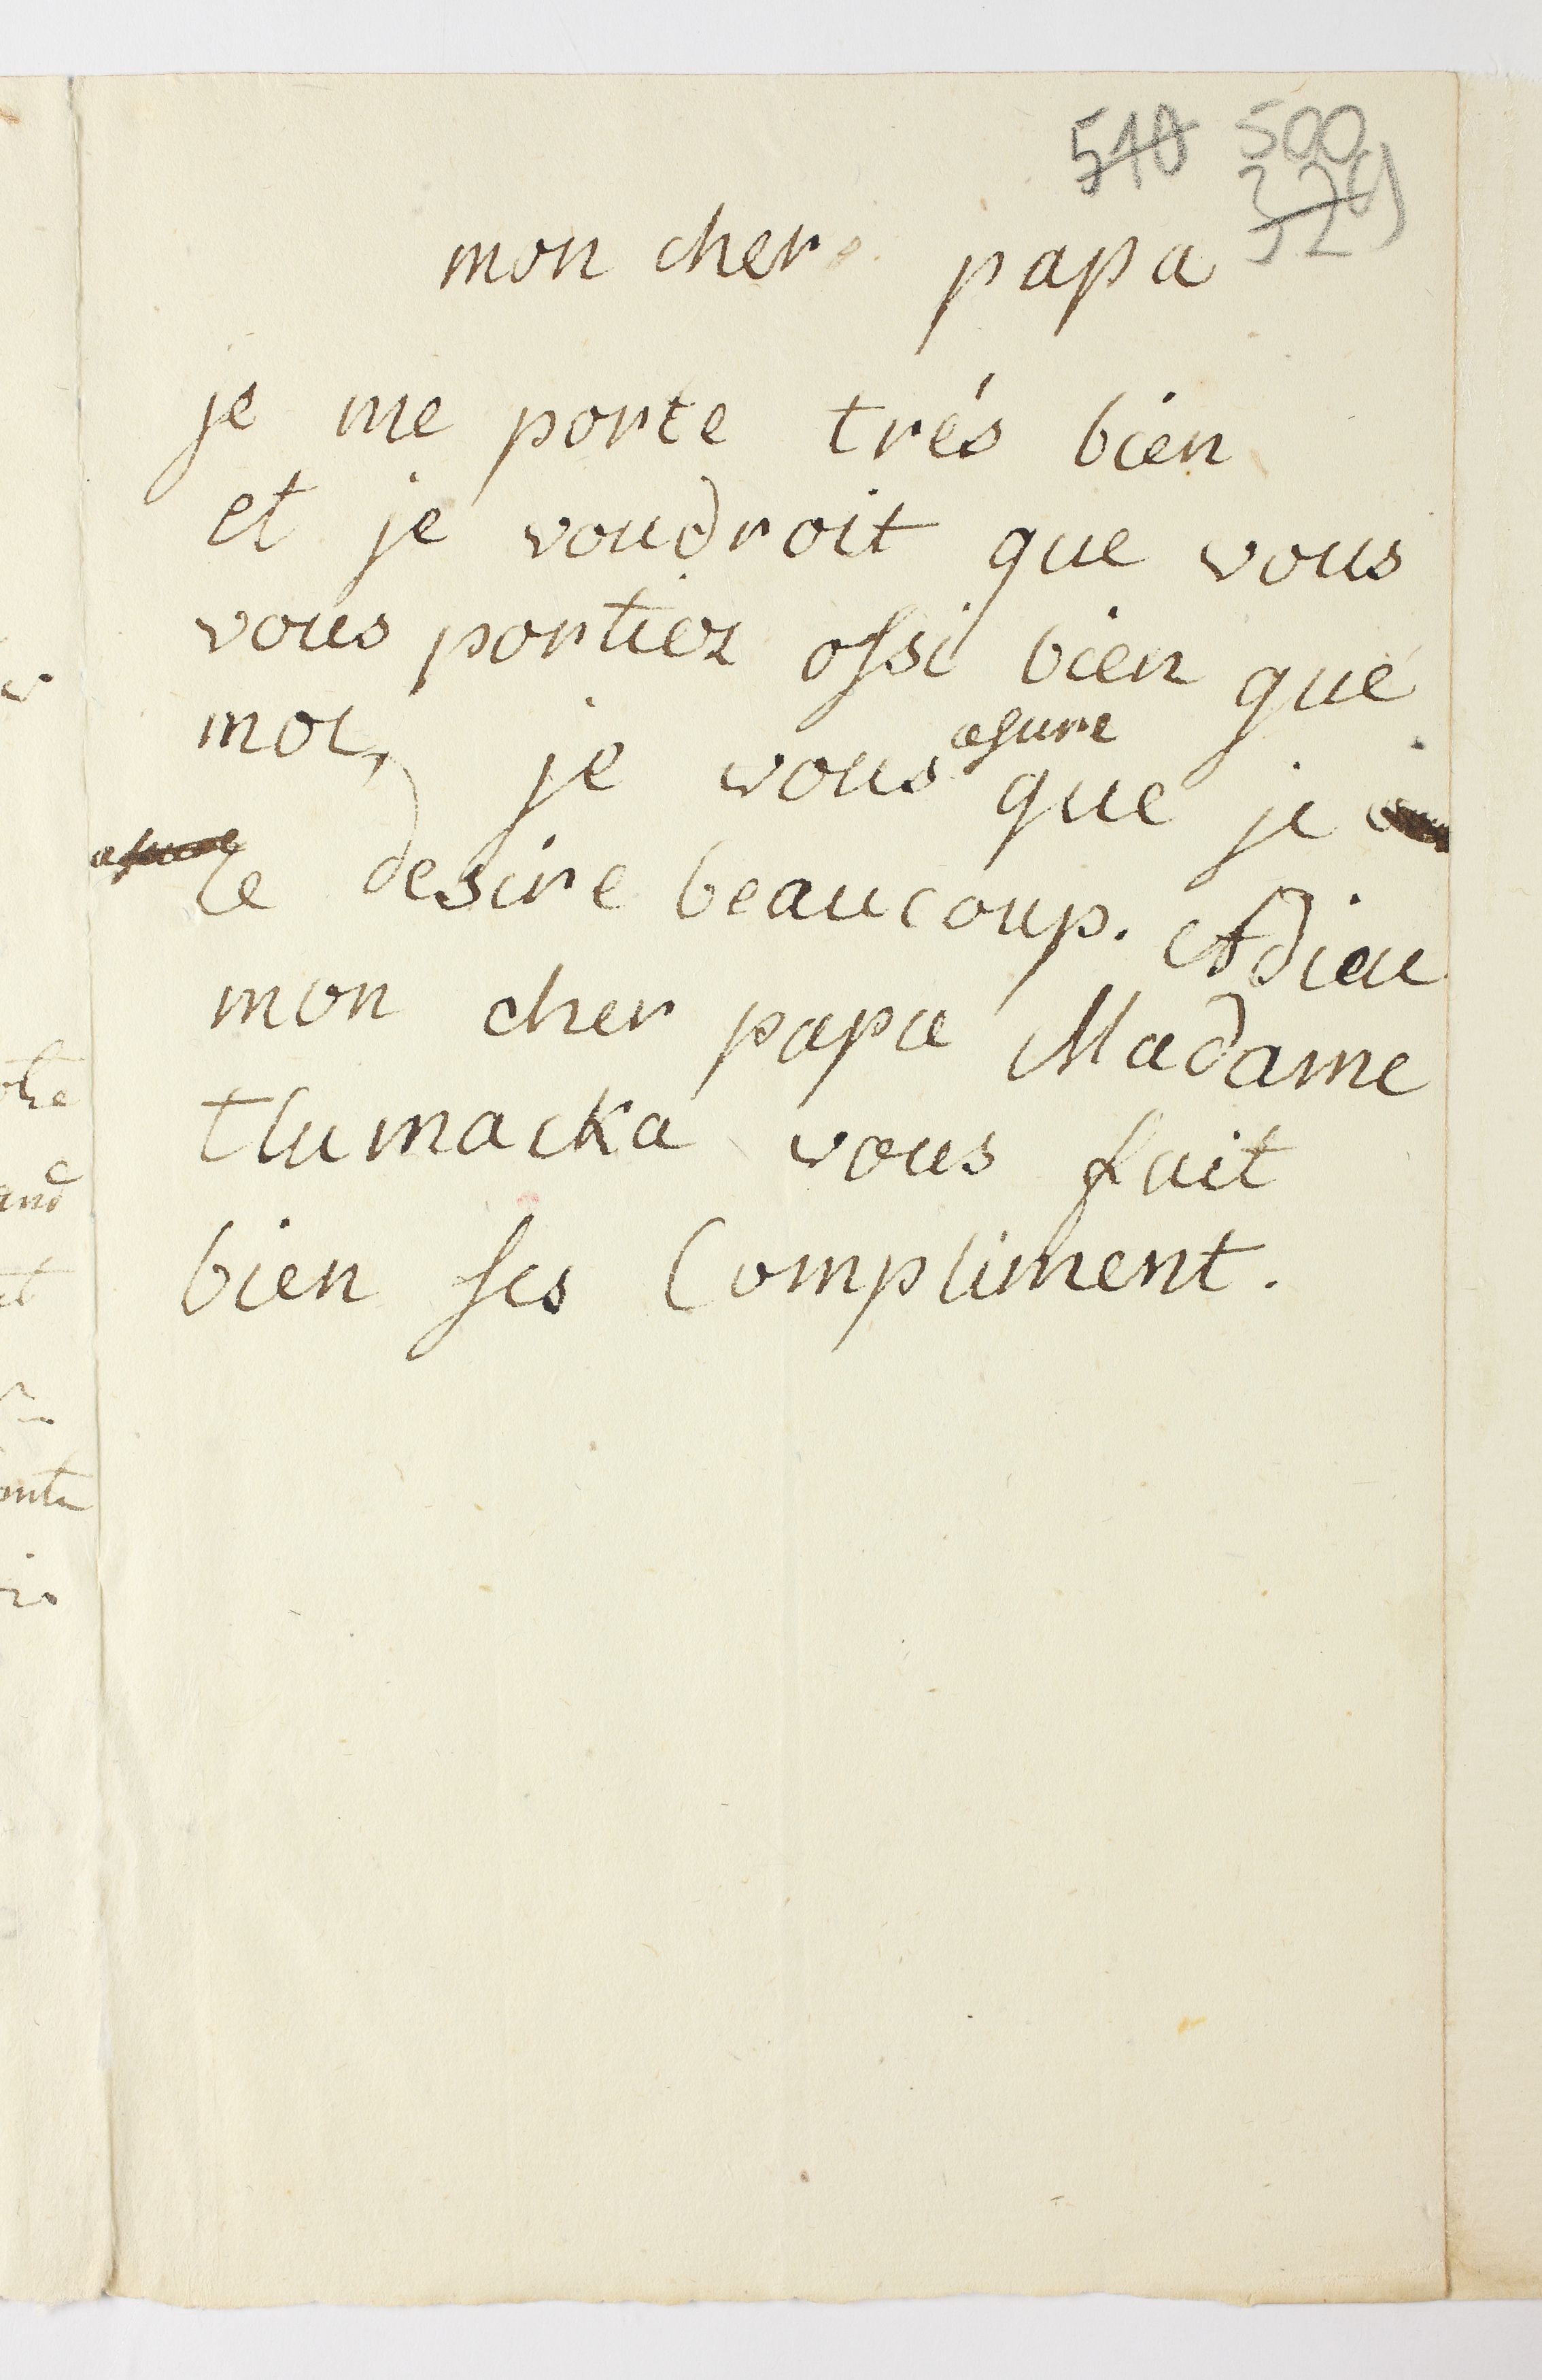 510 500
329
mon cher papa
je me porte trés bien
et je voudroit que vous
vous portiez ossi bien que
moi, je vous asure que je
le desire beaucoup. Adieu
mon cher papa Madame
tlumacka vous fait
bien ses Compliment.